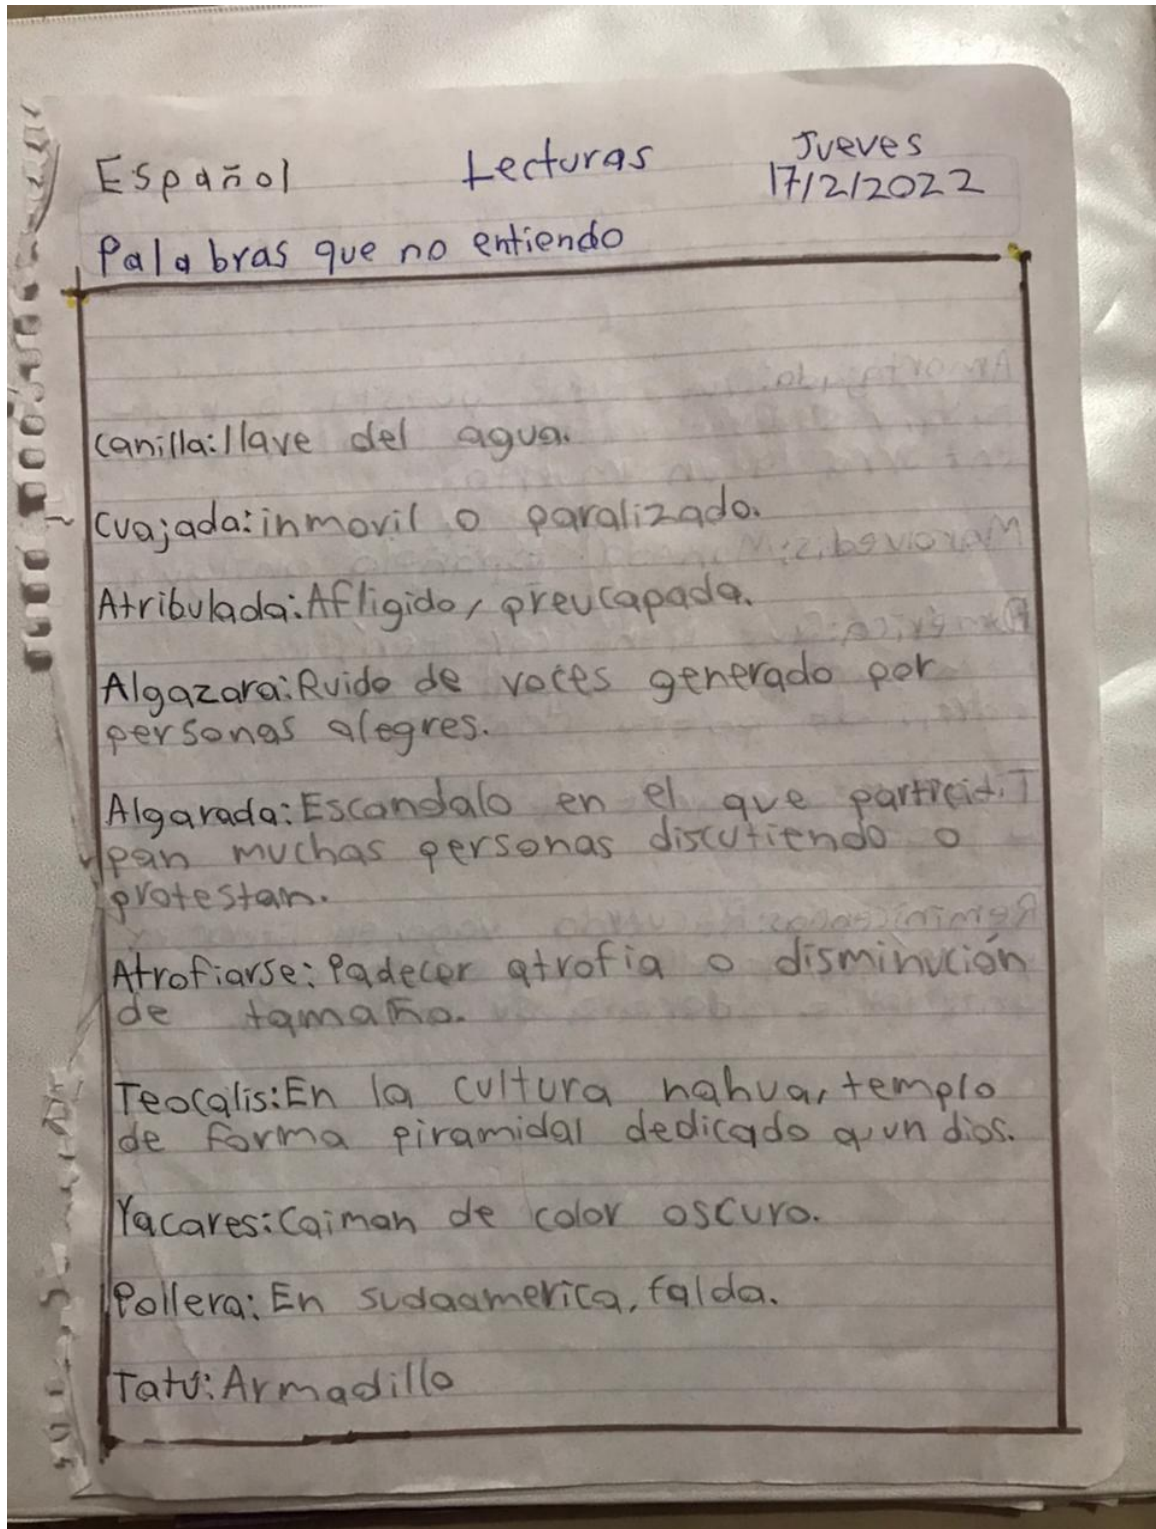 Español Lecturas Jueves
17/2/2022
Palabras que no entiendo
Canilla: llave del agua.
Cuajada: inmovil o paralizado.
Atribulada: Afligido, preucapada.
Algazara: Ruido de voces generado por
personas alegres.
Algarada: Escandalo en el que partici
pan muchas personas discutiendo o
protestan.
Atrofiarse: Padecer atrofia o disminución
de tamaño.
Teocalis: En la cultura nahua, templo
de forma piramidal dedicado a un dios.
Yacares: Caiman de color oscuro.
Pollera: En sudaamerica, falda.
Tatú: Armadillo